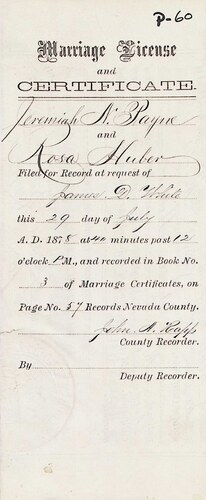 P-60
Marriage License
and
CERTIFICATE.
Jeremiah N. Payne
and
Rosa Huber
Filed for Record at request of
James D. White
this 29 day of July
A. D. 1878 at 40 minutes past 12
o'clock P.M., and recorded in Book No.
3 of Marriage Certificates, on
Page No. 57 Records Nevada County.
John A. Rapp
County Recorder.
By
Deputy Recorder.